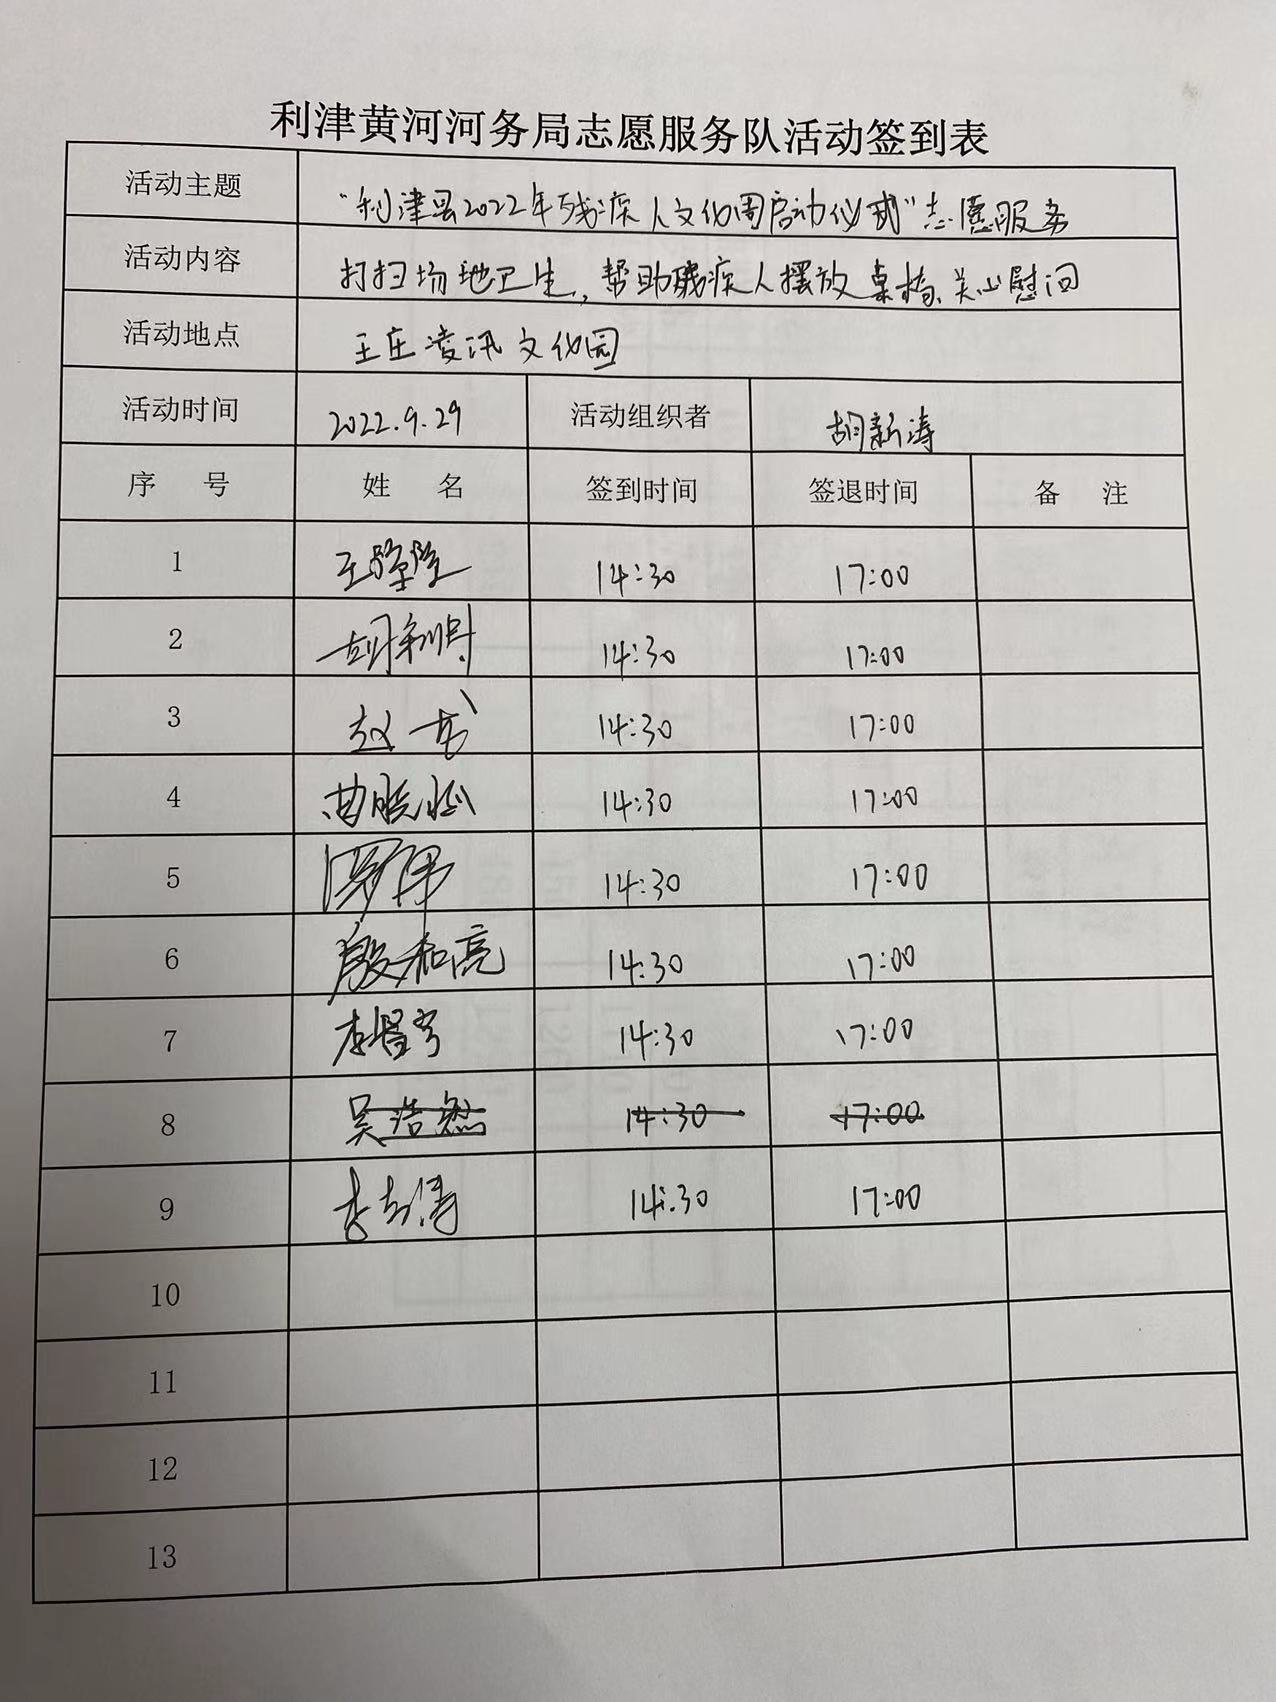 利津黄河河务局志愿服务队活动签到表
活动主题 "利津县2022年残疾人文化周启动仪式"志愿服务
活动内容 打扫场地卫生,帮助残疾人摆放桌椅、关心慰问
活动地点 王庄凌汛文化园
活动时间 2022.9.29 活动组织者 胡新涛
序 号 姓 名 签到时间 签退时间 备 注
1 14:30 17:00
2 14:30 17:00
3 14:30 17:00
4 14:30 17:00
5 14:30 17:00
6 殷和亮 14:30 17:00
7 14:30 17:00
8 吴浩然 14:30 17:00
9 14:30 17:00
10
11
12
13